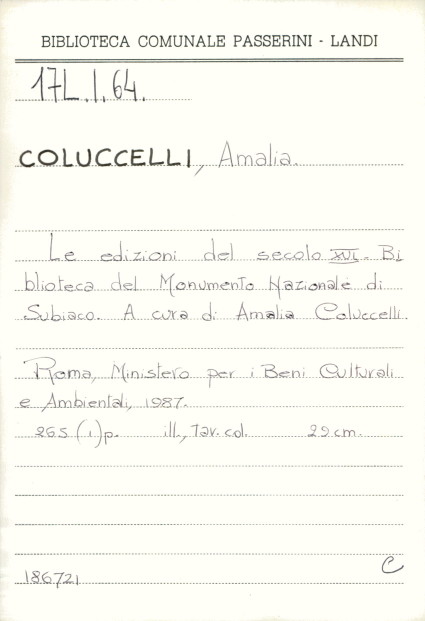 BIBLIOTECA COMUNALE PASSERINI - LANDI
17L.I.64.
COLUCCELLI, Amalia.
Le edizioni del secolo XVI. Bi
blioteca del Monumento Nazionale di
Subiaco. A cura di Amalia Coluccelli.
Roma, Ministero per i Beni Culturali
e Ambientali, 1987.
265 (1)p. ill., Tav. col. 29 cm.
C
186721